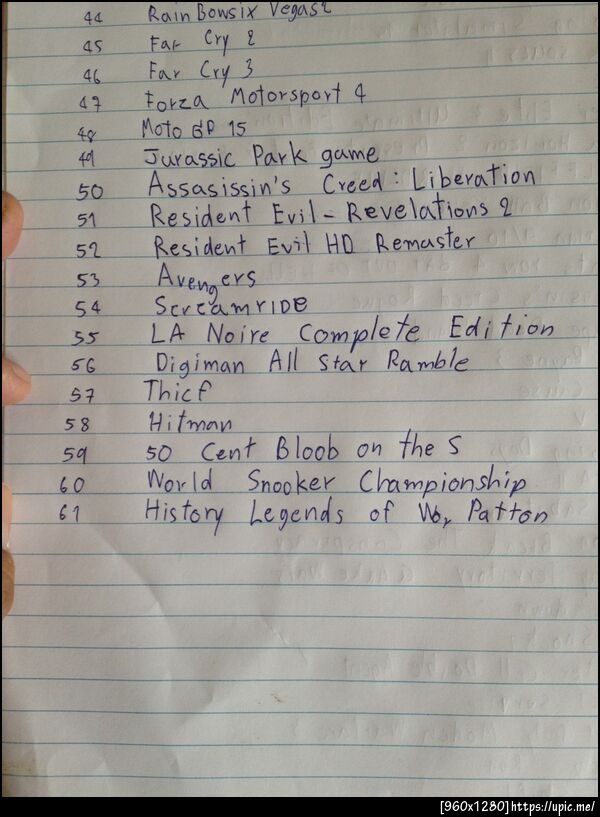 44 RainBowsix Vegas2
45 Far Cry 2
46 Far Cry 3
47 Forza Motorsport 4
48 Moto GP 15
49 Jurassic Park game
50 Assasissin's Creed : Liberation
51 Resident Evil - Revelations 2
52 Resident Evil HD Remaster
53 Avengers
54 ScreamriDe
55 LA Noire Complete Edition
56 Digiman All Star Ramble
57 Thief
58 Hitman
59 50 Cent Bloob on the S
60 World Snooker Championship
61 History Legends of War Patton
[960x1280]https://upic.me/